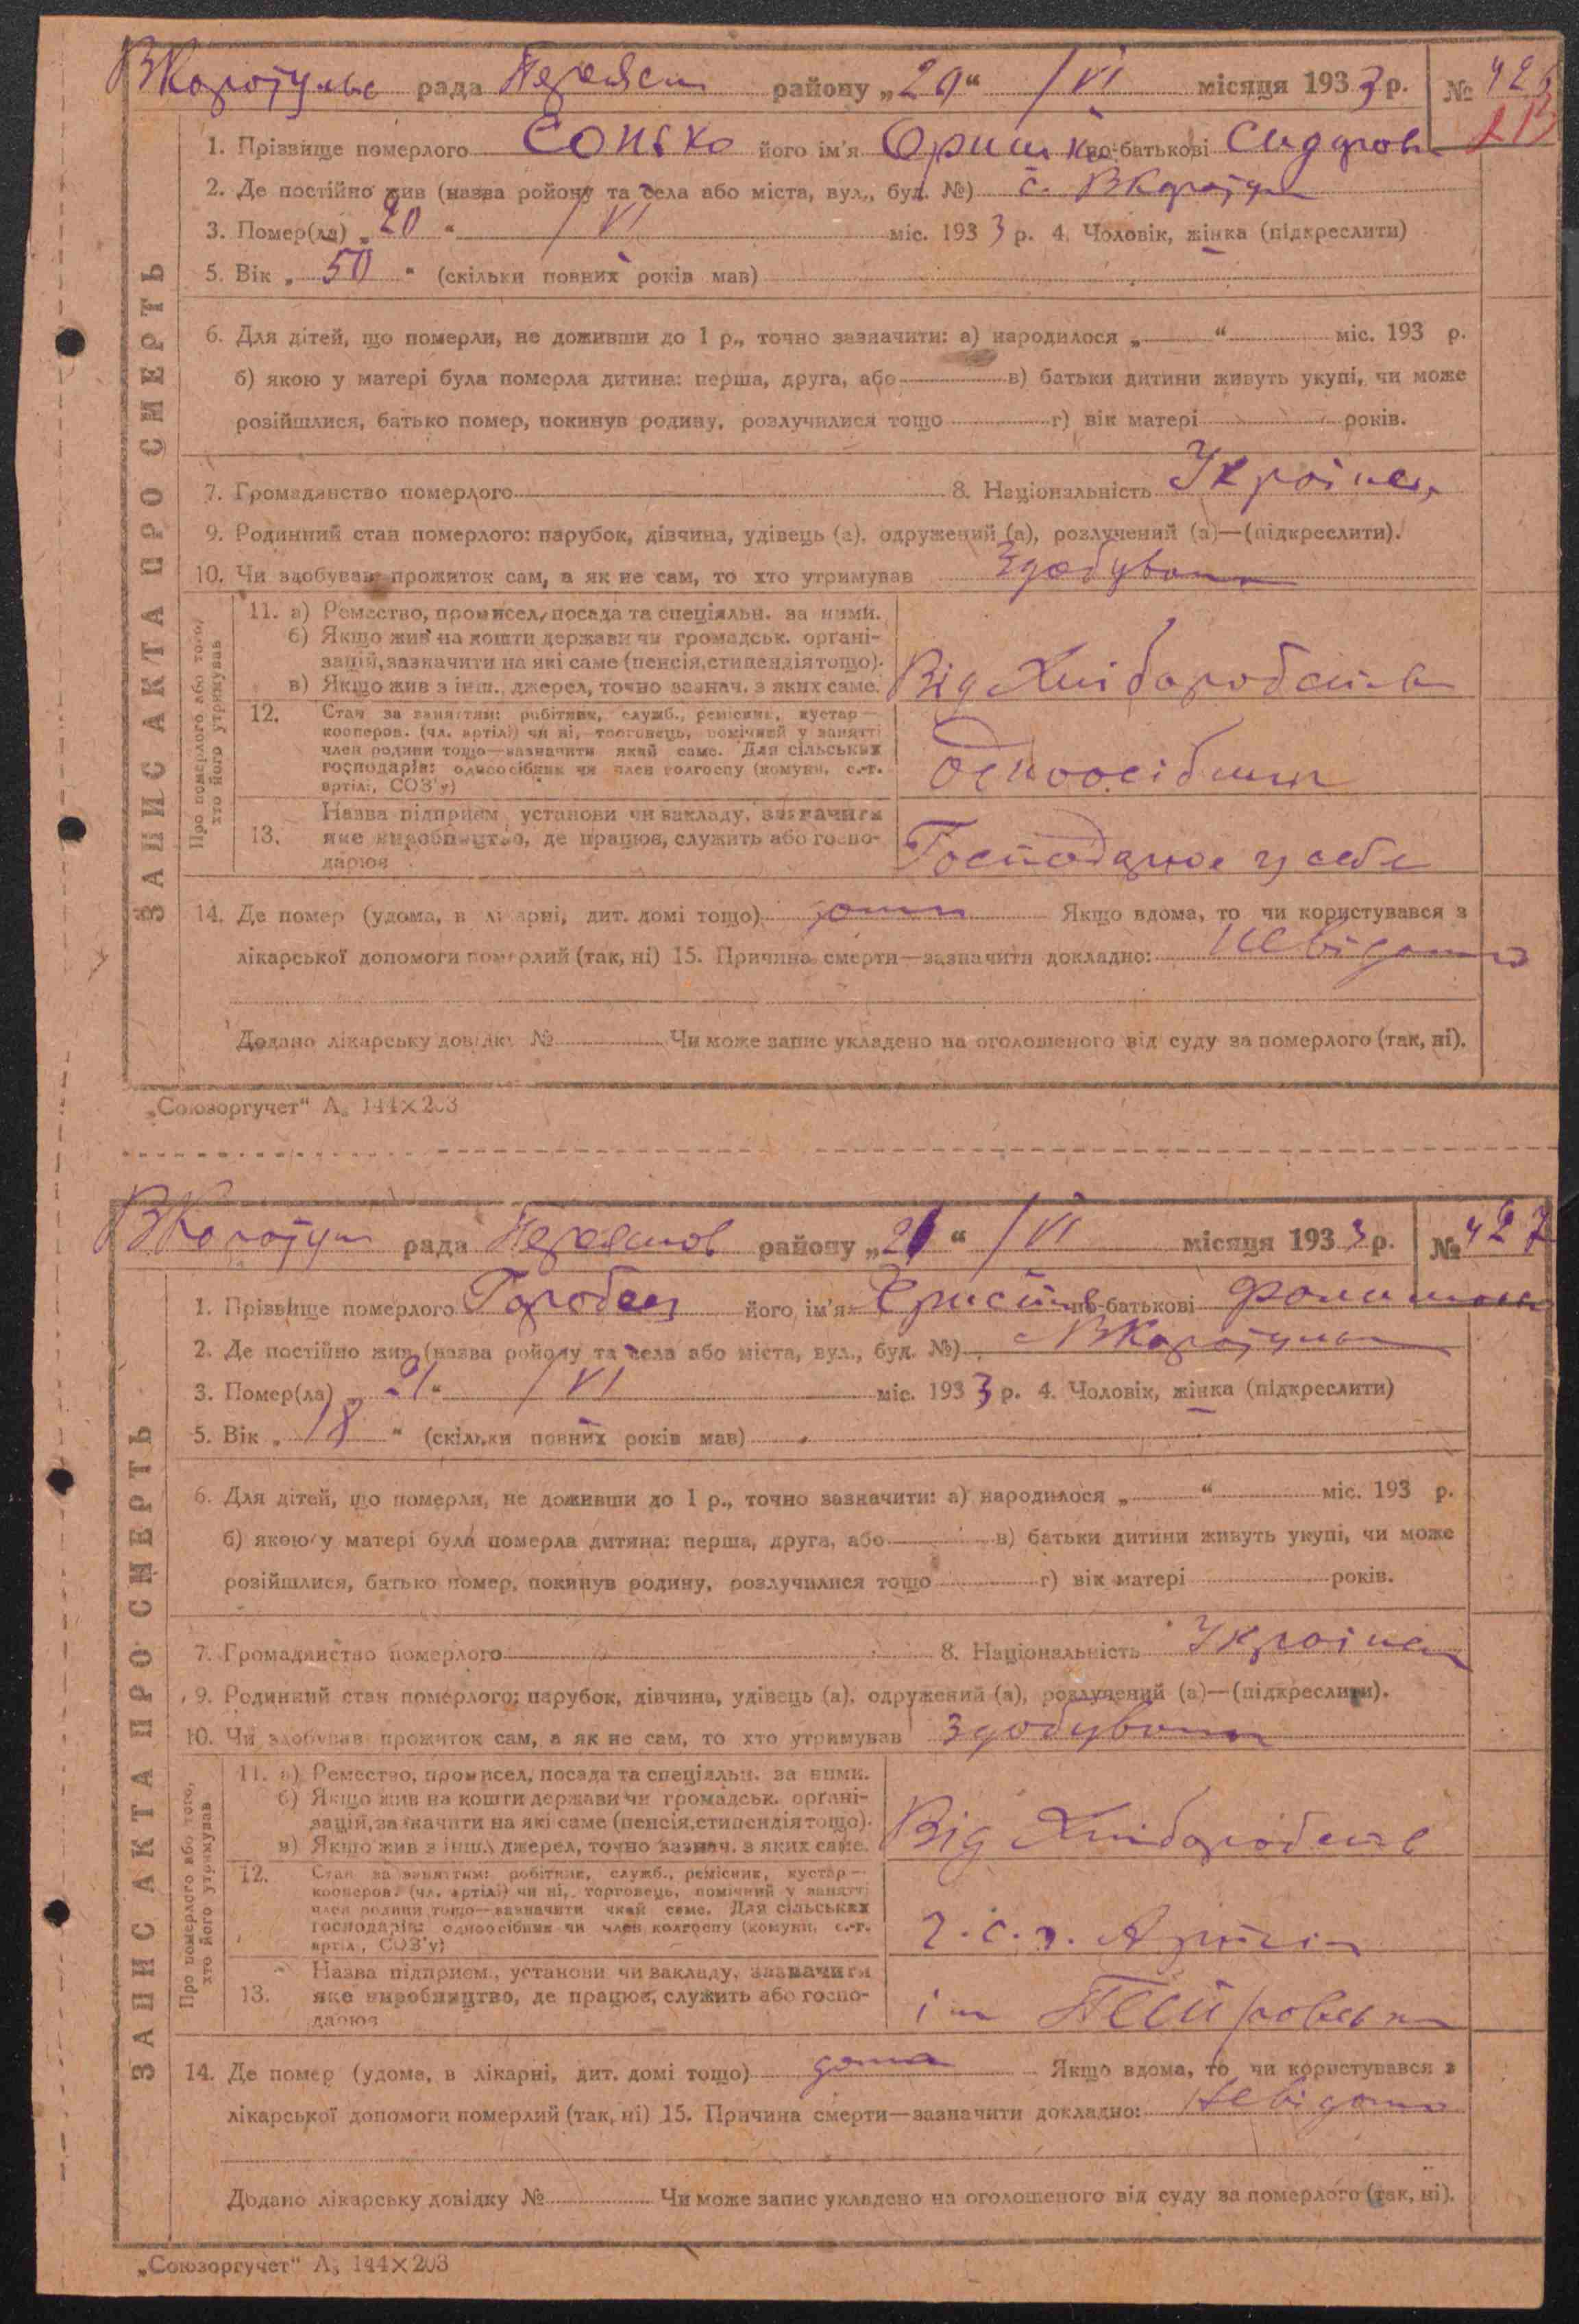 ВКоротульс рада Переясл району „20“ /VI місяця 1933 р. № 426
1. Прізвище померлого Сонько його ім'я Оришка по-батькові Сидоров
2. Де постійно жив (назва ройону та села або міста, вул., буд. №) с. ВКарат
3. Помер(ла) „20“ /VI міс. 1933 р. 4. Чоловік, жінка (підкреслити)
5. Вік „50“ (скільки повних років мав)
6. Для дітей, що померли, не доживши до 1 р., точно зазначити: а) народилося „ “ міс. 193 р.
б) якою у матері була померла дитина: перша, друга, або в) батьки дитини живуть укупі, чи може
розійшлися, батько помер, покинув родину, розлучилися тощо г) вік матері років.
7. Громадянство померлого 8. Національність Україн
9. Родинний стан померлого: парубок, дівчина, удівець (а), одружений (а), розлучений (а)—(підкреслити).
10. Чи здобував прожиток сам, а як не сам, то хто утримував Здобувала
ЗАПИС АКТА ПРО СМЕРТЬ
Про померлого або того,
хто його утримував
11. а) Ремество, промисел, посада та спеціяльн. за ними.
б) Якщо жив на кошти держави чи громадськ. органі-
зацій, зазначити на які саме (пенсія, стипендія тощо).
в) Якщо жив з інш., джерел, точно зазнач. з яких саме.
Від Хліборобства
12. Стан за заняттям: робітник, служб., ремісник, кустар—
кооперов. (чл. артілі) чи ні, торговець, помічний у занятті
член родини тощо—зазначити який саме. Для сільських
господарів: одноосібник чи член колгоспу (комуни, с.-г.
артілі, СОЗ'у)
Одноосібник
13. Назва підприєм., установи чи закладу, зазначити
яке виробництво, де працює, служить або госпо-
дарює
Господарює у себе
14. Де помер (удома, в лікарні, дит. домі тощо) дома Якщо вдома, то чи користувався з
лікарської допомоги померлий (так, ні) 15. Причина смерти—зазначити докладно: Невідомо
Додано лікарську довідку № Чи може запис укладено на оголошеного від суду за померлого (так, ні).
„Союзоргучет“ А5 144×203
ВКоротул рада Переяслов району „21“ /VI місяця 1933 р. № 427
1. Прізвище померлого Горобец його ім'я Христя по-батькові
2. Де постійно жив (назва ройону та села або міста, вул., буд. №) с ВКаратул
3. Помер(ла) „21“ /VI міс. 1933 р. 4. Чоловік, жінка (підкреслити)
5. Вік „18“ (скільки повних років мав)
6. Для дітей, що померли, не доживши до 1 р., точно зазначити: а) народилося „ “ міс. 193 р.
б) якою у матері була померла дитина: перша, друга, або в) батьки дитини живуть укупі, чи може
розійшлися, батько помер, покинув родину, розлучилися тощо г) вік матері років.
7. Громадянство померлого 8. Національність Україн
9. Родинний стан померлого: парубок, дівчина, удівець (а), одружений (а), розлучений (а)—(підкреслити).
10. Чи здобував прожиток сам, а як не сам, то хто утримував здобувала
ЗАПИС АКТА ПРО СМЕРТЬ
Про померлого або того,
хто його утримував
11. а) Ремество, промисел, посада та спеціяльн. за ними.
б) Якщо жив на кошти держави чи громадськ. органі-
зацій, зазначити на які саме (пенсія, стипендія тощо).
в) Якщо жив з інш., джерел, точно зазнач. з яких саме.
Від Хліборобств
12. Стан за заняттям: робітник, служб., ремісник, кустар—
кооперов. (чл. артілі) чи ні, торговець, помічний у занятті
член родини тощо—зазначити який саме. Для сільських
господарів: одноосібник чи член колгоспу (комуни, с.-г.
артілі, СОЗ'у)
ч.с.г. Артілі
13. Назва підприєм., установи чи закладу, зазначити
яке виробництво, де працює, служить або госпо-
дарює
ім Петровськ
14. Де помер (удома, в лікарні, дит. домі тощо) дома Якщо вдома, то чи користувався з
лікарської допомоги померлий (так, ні) 15. Причина смерти—зазначити докладно: Невідомо
Додано лікарську довідку № Чи може запис укладено на оголошеного від суду за померлого (так, ні).
„Союзоргучет“ А5 144×203